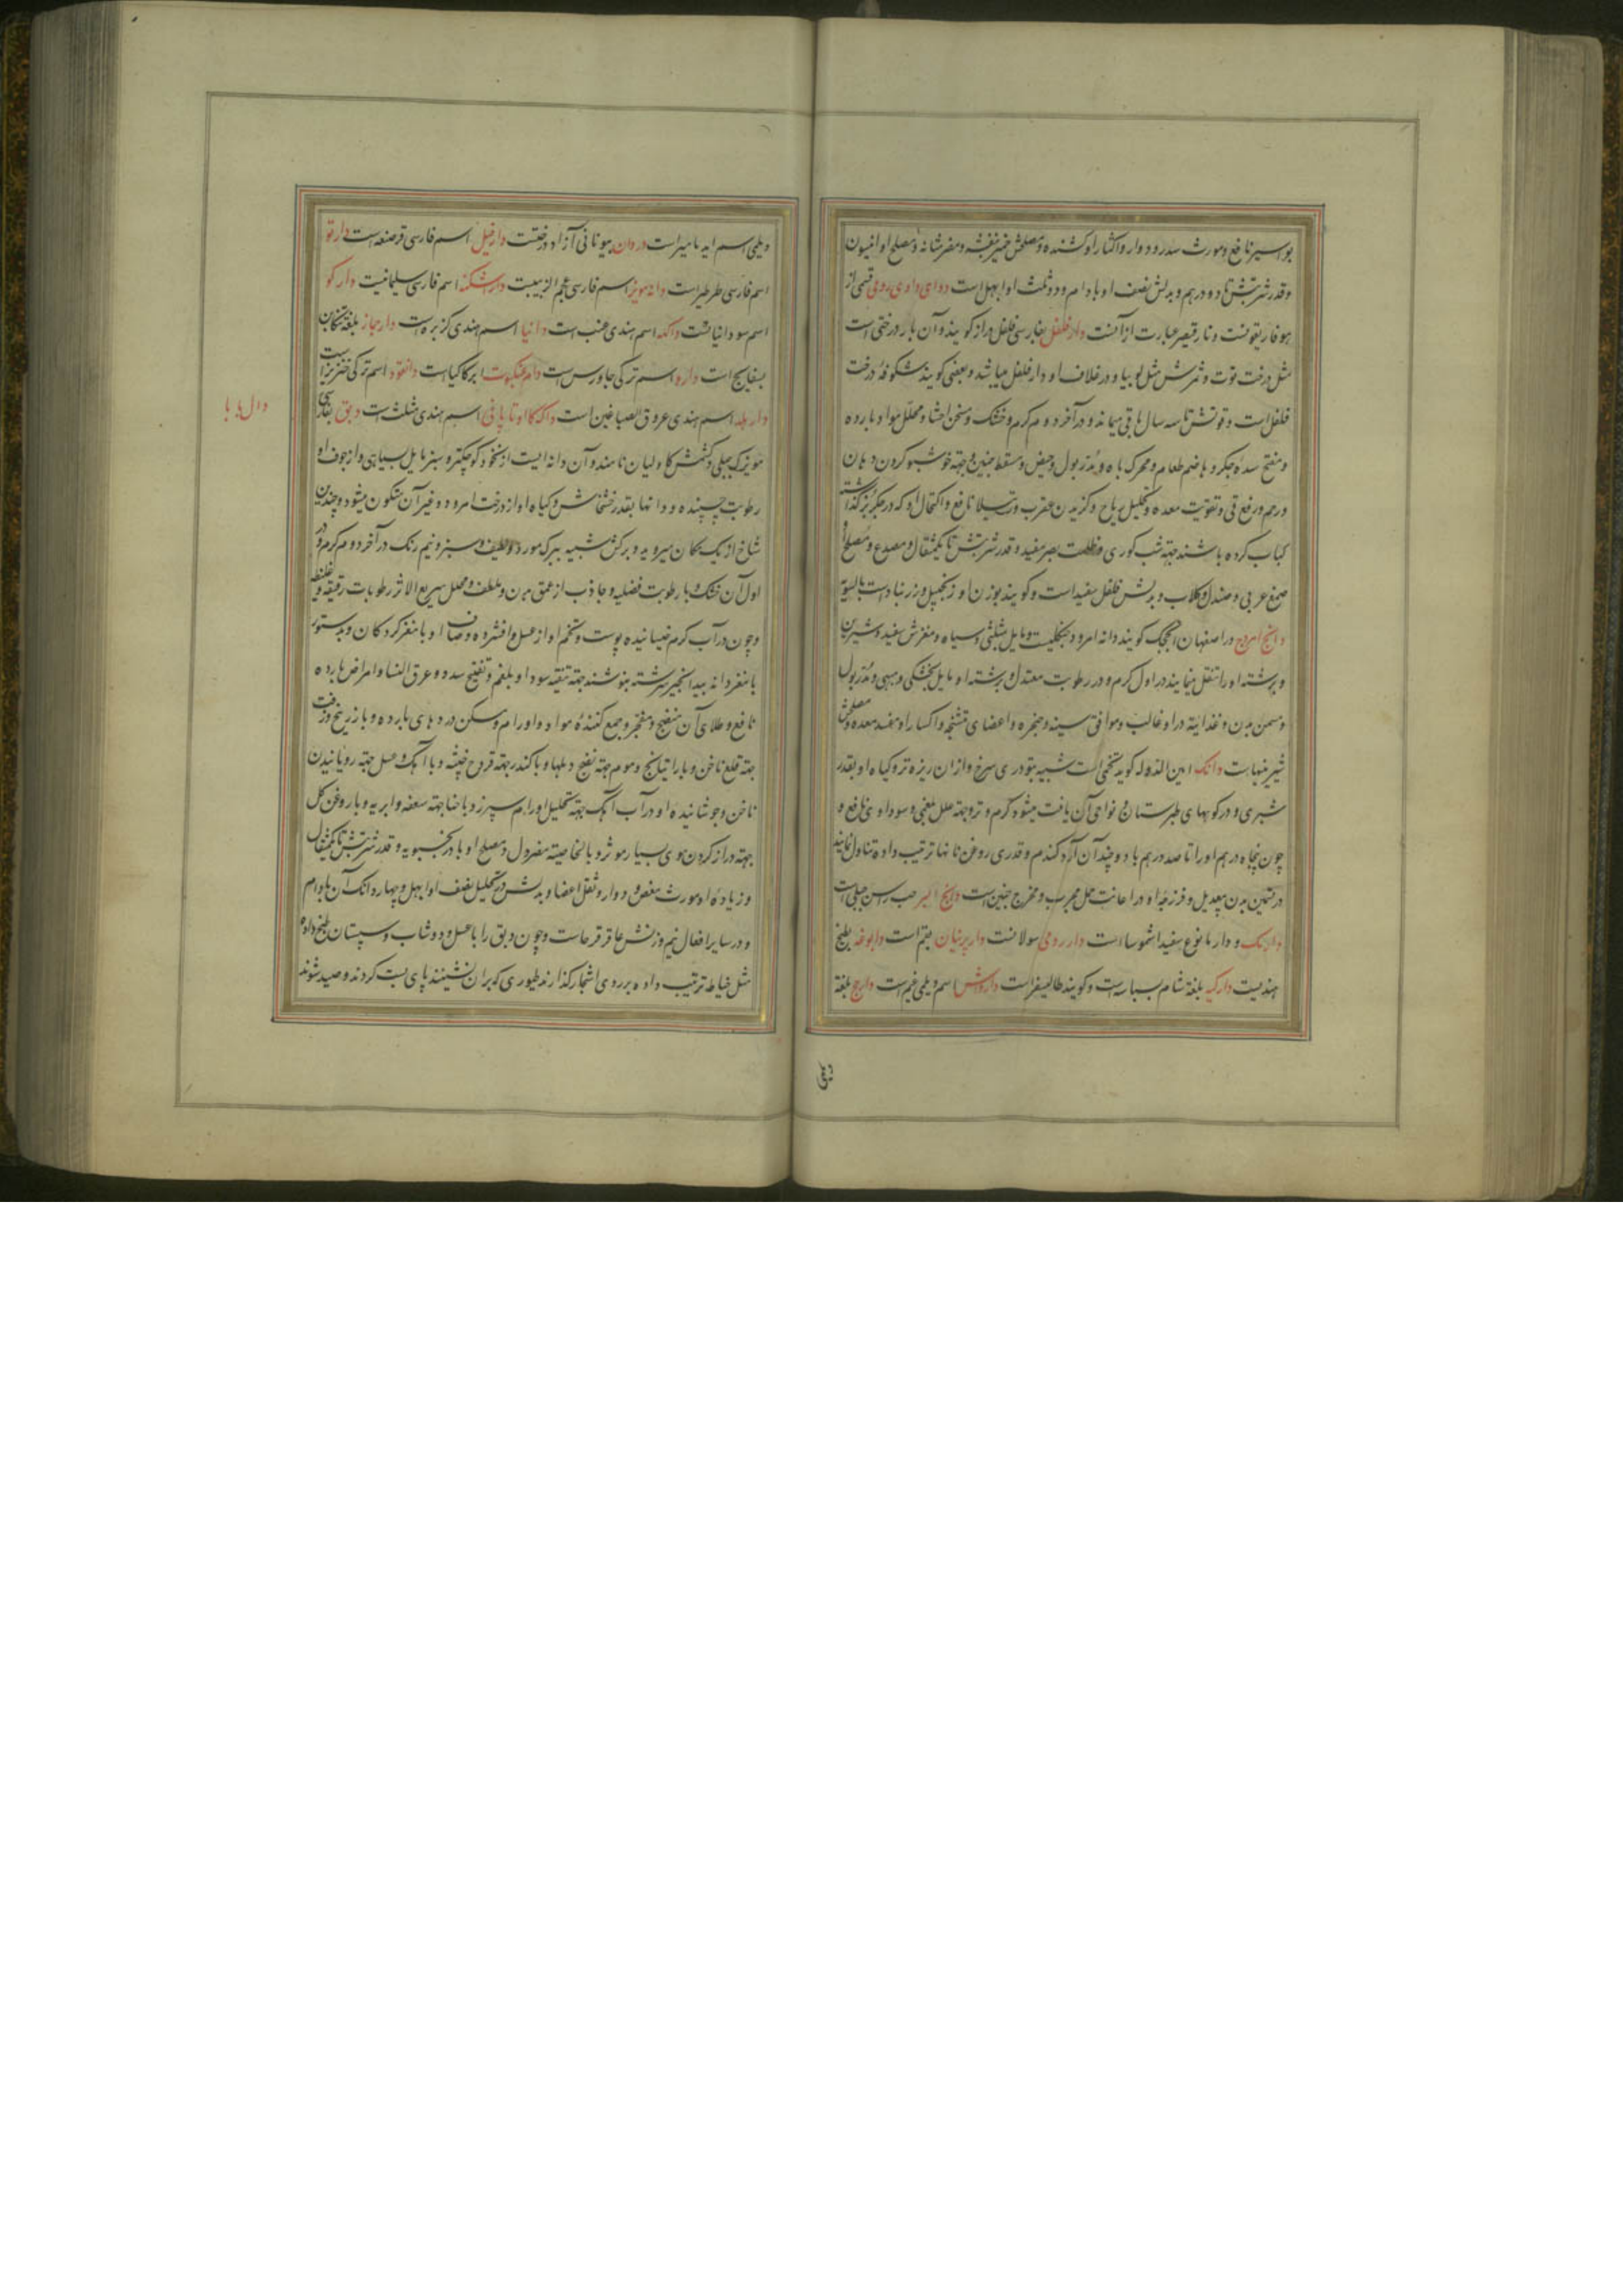 بواسیر نافع و مورث سدر و دوار و اکثار او کشنده و مصلحش خمیر بنفشه و مضر مثانه و مصلح او انیسون
و قدر شربتش تا دو درهم و بدلش نصف او بادام و دو ثلث او ابهل است دوای داوی رومی قسمی از
هوفاریقونست و نارقیصر عبارت از آنست دارفلفل بفارسی فلفل دراز کویند و آن بار درختی است
مثل درخت توت و ثمرش مثل لوبیا و در غلاف او دارفلفل میباشد و بعضی کویند شکوفهٔ درخت
فلفل است و قوتش تا سه سال باقی میماند و در آخر دوم کرم و خشک و مسخن احشا و محلل مواد بارده
و مفتح سده جکر و هاضم طعام و محرک باه و مدر بول و حیض و مسقط جنین و جهة خوشبو کردن دهان
و رحم و رفع قی و تقویت معده و تحلیل ریاح و کزیدن عقرب و رتیلا نافع و اکتحال او که در جکر بز کذاشته
کباب کرده باشند جهة شب کوری و ظلمت بصر مفید و قدر شربتش تا یکمثقال و مصدع و مصلح او
صمغ عربی و صندل و کلاب و بدلش فلفل سفید است و کویند بوزن او زنجبیل و زرنباد است بالسویه
دانج امرج در اصفهان انجکک کویند دانه امرود جنکلیست و مایل بمثلثی و سیاه و مغزش سفید و شیرین
و برشته او را تنقل مینمایند در اول کرم و در رطوبت معتدل و برشته او مایل بخشکی و مبهی و مدر بول
و مسمن بدن و غذائیة در او غالب و موافق سینه و حنجره و اعضای متشنجه و اکثار او مفسد معده و مصلحش
شیرینیهاست دانک امین الدوله کوید تخمی است شبیه بتودری سرخ و از ان ریزه تر و کیاه او بقدر
شبری و در کوههای طبرستان و نواحی آن یافت میشود کرم و تر و جهة علل بلغمی و سوداوی نافع و
چون پنجاه درهم او را تا صد درهم با دو چندان آرد کندم و قدری روغن نانها ترتیب داده تناول نمایند
در تسمین بدن بیعدیل و فرزجهٔ او در اعانت حمل مجرب و مخرج جنین است دانج ابسر حب راسن جبلی است
دارمک و دارما نوع سفید اشموسا است دار رومی سولانست دار پرنیان بقم است دابوغه بطیخ
هندیست دارکیه بلغة شام بسباسه است و کویند طالیسفر است داروش اسم دیلمی فیم است دارج بلغة
دیلمی
دیلمی اسم ایه مامیر است دردان بیونانی آزاد درختست دارفیل اسم فارسی قرصعنه است دارقو
اسم فارسی طرطیر است دانه مویز اسم فارسی عجم الزبیبست داراشکنه اسم فارسی سلیمانیست دارکو
اسم سودانیاتست داکه اسم هندی عنب است دانیا اسم هندی کزبره است دارمجاز بلغة تنکابن
بسفایج است داره اسم ترکی جاورس است دام عنکبوت ابرکاکیاست دانقوه اسم ترکی خنزیر است
دار بلد اسم هندی عروق الصباغین است داکه کا اوتا پانی اسم هندی مثلث است دبق بفارسی
مویزک جبلی و کشمش کاولیان نامند و آن دانه ایست از نخود کوچکتر و سبز مایل بسیاهی و از جوف او
رطوبت چسبنده و دانها بقدر خشخاش و کیاه او از درخت امرود و غیر آن متکون میشود و چندین
شاخ از یک مکان میروید و برکش شبیه ببرک مورد و لطیف و سبز و نیم رنک در آخر دوم کرم و در
اول آن خشک و با رطوبت فضلیه و جاذب از عمق بدن و ملطف و محلل سریع الاثر رطوبات رقیقه و غلیظه
و چون در آب کرم خیسانیده پوست و تخم او از عسل وافشره و صاف او با مغز کردکان و بدستور
با مغز دانه بیدانجیر سرشته بنوشند جهة تنقیه سودا و بلغم و تفتیح سدد و عرق النسا و امراض بارده
نافع و طلای آن منضج و مفجر و جمع کنندهٔ مواد و اورام و مسکن دردهای بارده و با زرنیخ و زفت
جهة قلع ناخن و با راتیانج و موم جهة نضج دملها و با کندر جهة قروح خبیثه و با آهک و عسل جهة رویانیدن
ناخن و جوشانیدهٔ او در آب آهک جهة تحلیل اورام سپرز و با حنا جهة سعفه و ابریه و با روغن کل
جهة دراز کردن موی بسیار موثر و بالخاصیة مضر دل و مصلح او بادرنجبویه و قدر شربتش تا یکمثقال
و زیادهٔ او مورث مغص و دوار و ثقل اعضا و بدلش در تحلیل نصف او ابهل و چهار دانک آن بادام
و در سایر افعال نیم وزنش عاقرقرحاست و چون دبق را با عسل و دوشاب و سپستان طبخ داده
مثل خیاطه ترتیب داده بر روی اشجار کذارند طیوری که بران نشینند پای بست کردند و صید شوند
دال با با